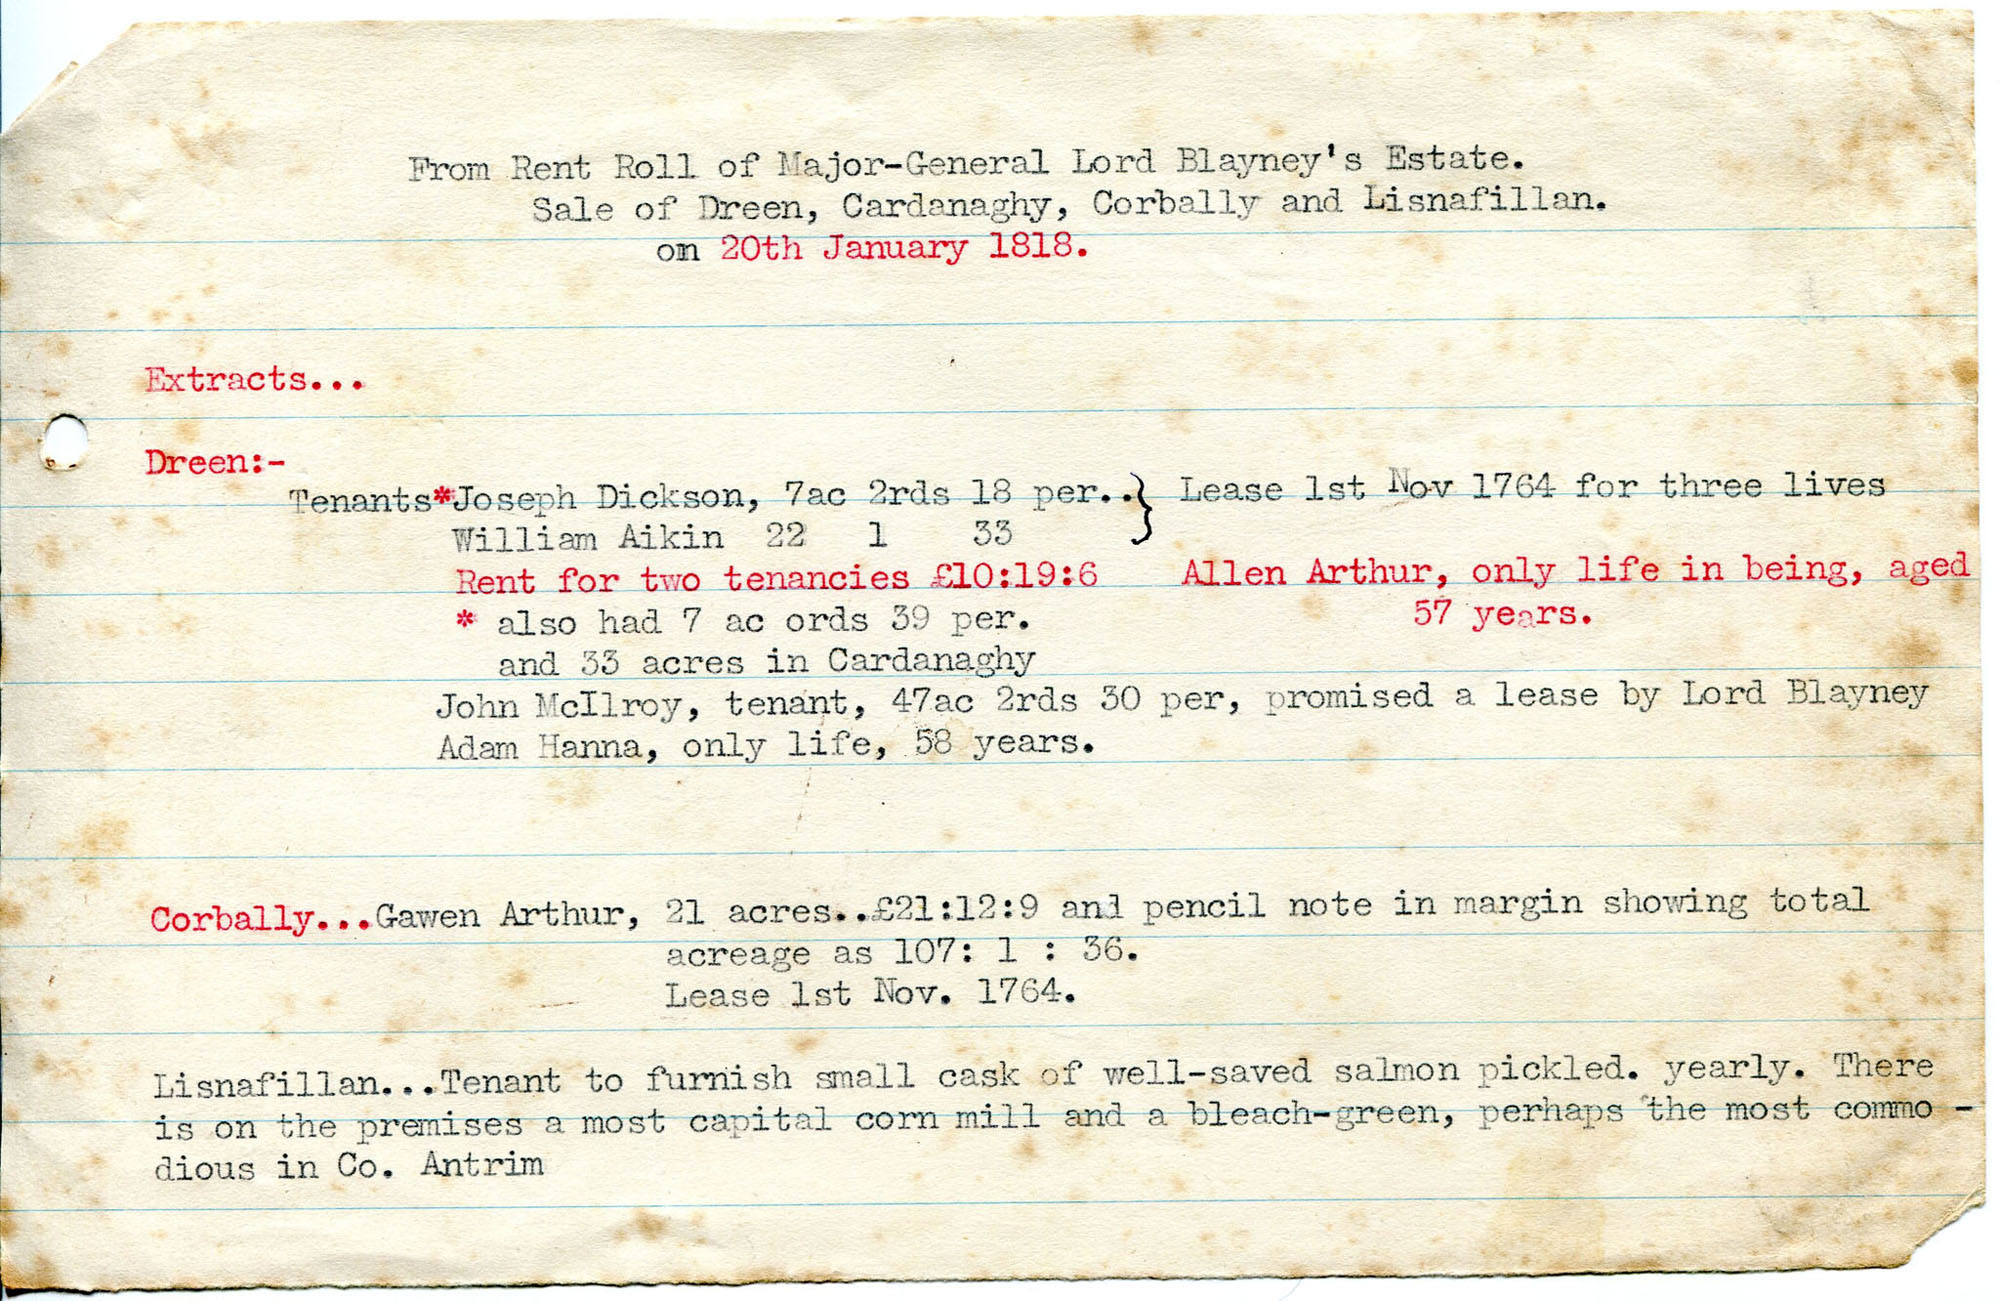 From Rent Roll of Major-General Lord Blayney's Estate.
Sale of Dreen, Cardanaghy, Corbally and Lisnafillan.
on 20th January 1818.
Extracts...
Dreen:-
Tenants*Joseph Dickson, 7ac 2rds 18 per..} Lease 1st Nov 1764 for three lives
William Aikin 22 1 33
Rent for two tenancies £10:19:6 Allen Arthur, only life in being, aged
57 years.
* also had 7 ac ords 39 per.
and 33 acres in Cardanaghy
John McIlroy, tenant, 47ac 2rds 30 per, promised a lease by Lord Blayney
Adam Hanna, only life, 58 years.
Corbally...Gawen Arthur, 21 acres..£21:12:9 and pencil note in margin showing total
acreage as 107: 1 : 36.
Lease 1st Nov. 1764.
Lisnafillan...Tenant to furnish small cask of well-saved salmon pickled. yearly. There
is on the premises a most capital corn mill and a bleach-green, perhaps the most commo -
dious in Co. Antrim